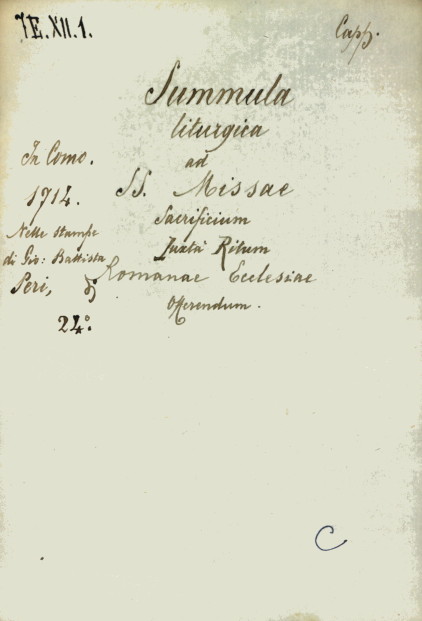 7E.XII.1.
Capp.
Summula
liturgica
In Como.
ad
1714.
SS. Missae
Nelle stampe
Sacrificium
di Gio: Battista
Juxta Ritum
Peri,
Romanae Ecclesiae
24°.
Offerendum.
C